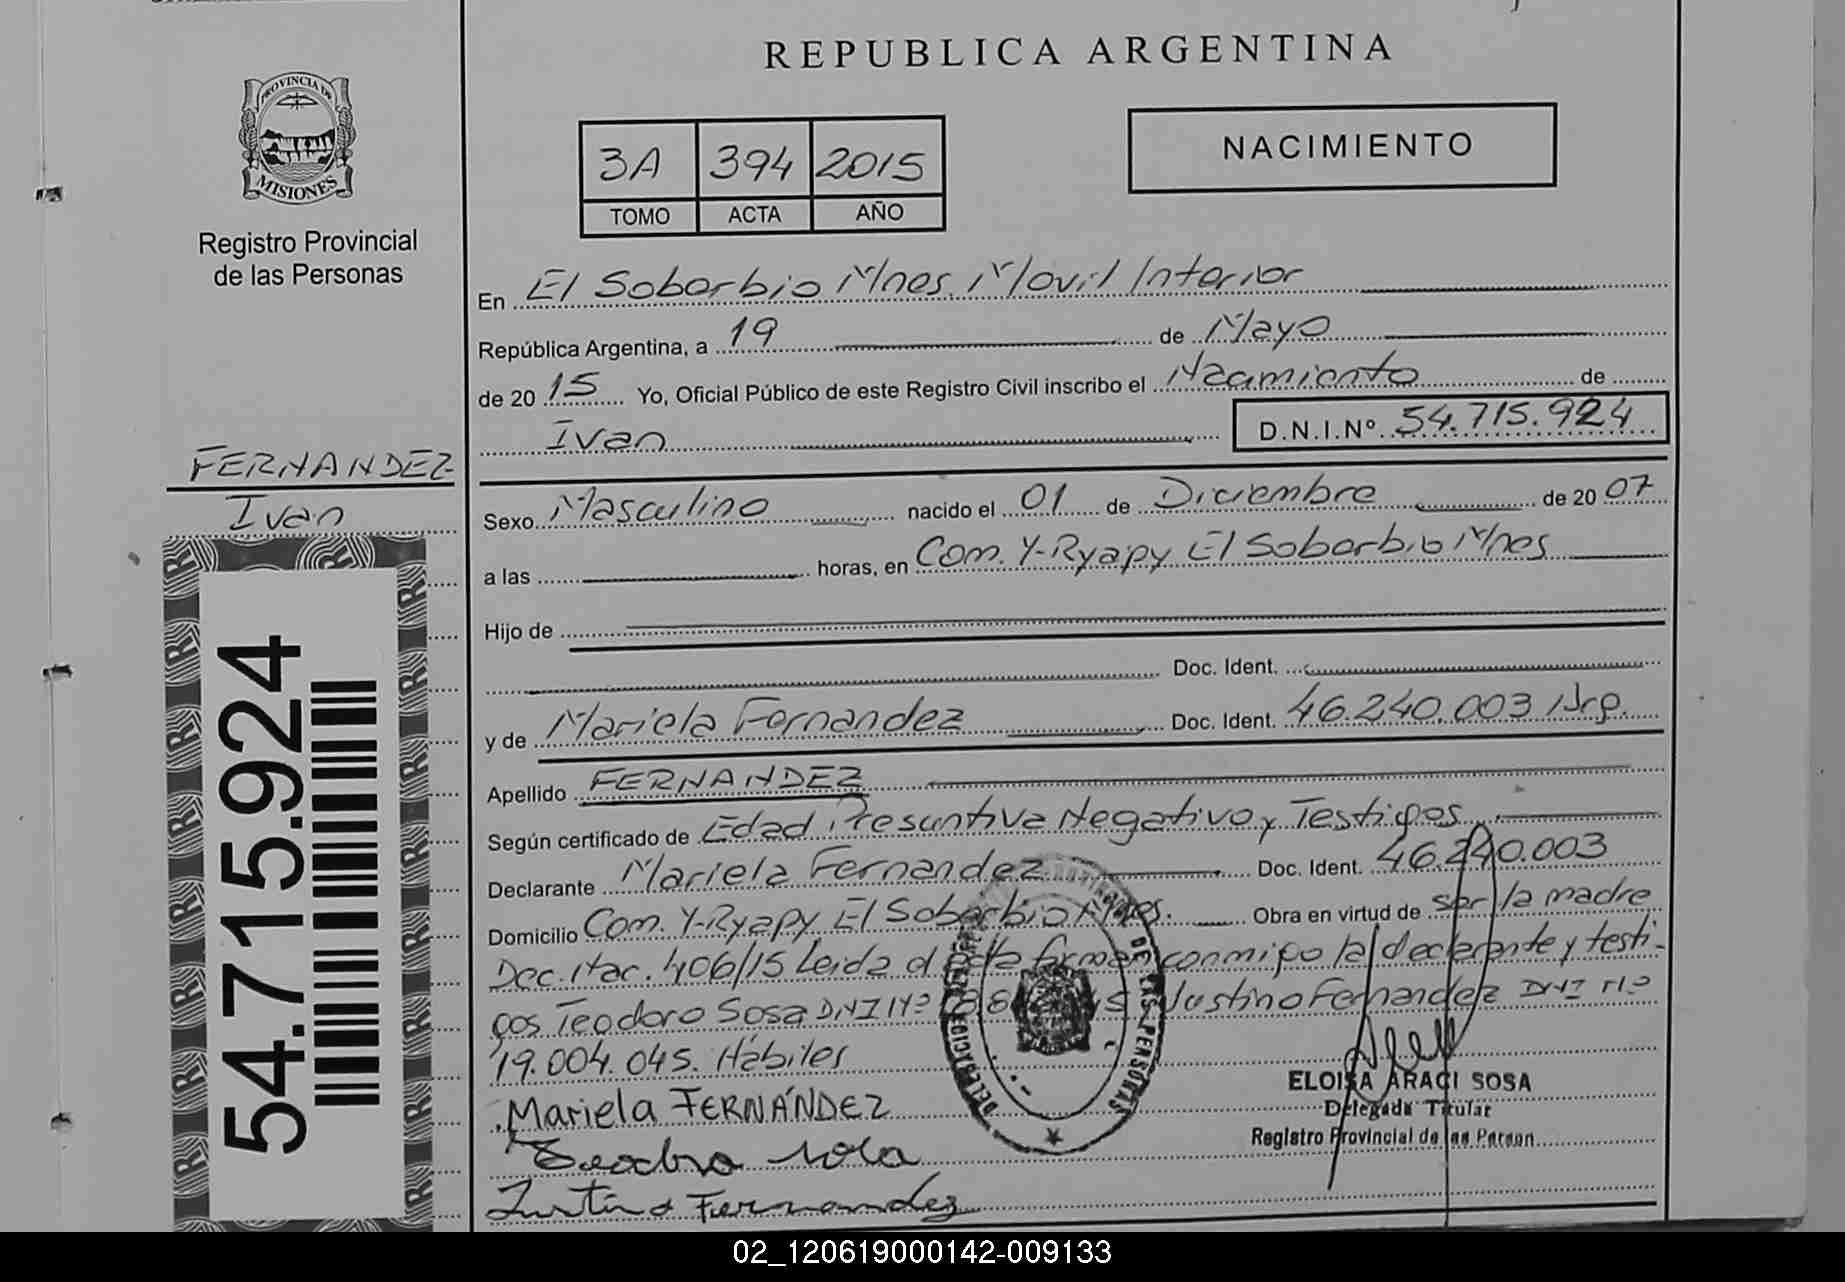 REPUBLICA ARGENTINA
PROVINCIA DE
MISIONES
Registro Provincial
de las Personas
3A 394 2015
TOMO ACTA AÑO
NACIMIENTO
En El Soborbio Mnes. Movil Interior
República Argentina, a 19 de Mayo
de 20 15 Yo, Oficial Público de este Registro Civil inscribo el Nacimiento de
Ivan D.N.I.Nº 54.715.924
FERNANDEZ
Ivan
54.715.924
Sexo Masculino nacido el 01 de Diciembre de 20 07
a las horas, en Com. Y-Ryapy El Soborbio Mnes
Hijo de
Doc. Ident.
y de Mariela Fernandez Doc. Ident. 46.240.003 Arg.
Apellido FERNANDEZ
Según certificado de Edad Presuntiva Negativo y Testigos
Declarante Mariela Fernandez Doc. Ident. 46.240.003
Domicilio Com. Y-Ryapy El Soborbio Mnes. Obra en virtud de ser la madre
Dec. Nac. 406/15 Leida el acta firman conmigo la declarante y testi-
gos Teodoro Sosa DNI Nº Justino Fernandez DNI Nº
19.004.045. Hábiles
Mariela FERNÁNDEZ
Teodoro sosa
Justino Fernandez
DE LAS PERSONAS
ELOISA ARACI SOSA
Delegada Titular
Registro Provincial de las Person
02_120619000142-009133